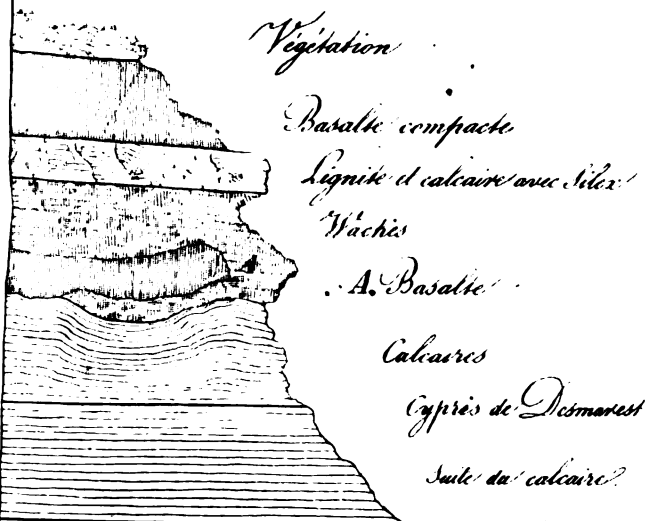 Végétation
Basalte compacte
Lignite et calcaire avec Silex
Wackes
A. Basalte
Calcaires
Cypris de Desmarest
Suite du calcaire.